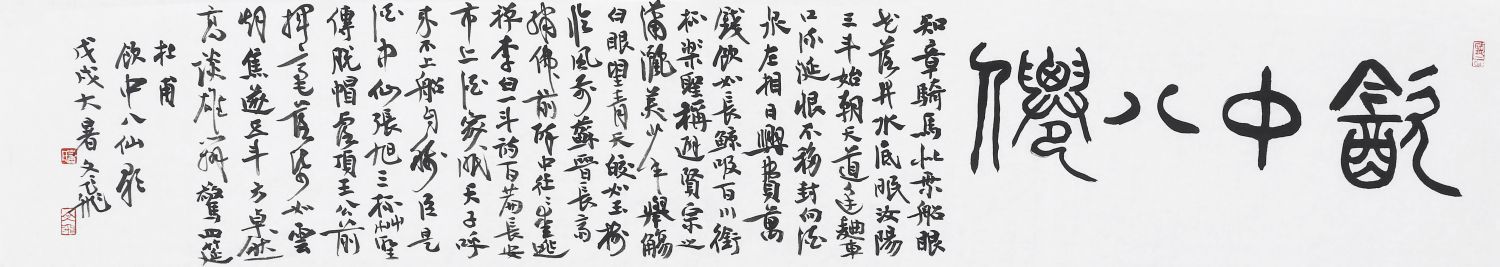 飲中八僊
知章騎馬似乘船眼
花落井水底眠汝陽
三斗始朝天道逢麴車
口流涎恨不移封向酒
泉左相日興費萬
錢飲如長鯨吸百川銜
杯樂聖稱避賢宗之
瀟灑美少年舉觴
白眼望青天皎如玉樹
臨風前蘇晉長齋
繡佛前醉中往往愛逃
禪李白一斗詩百篇長安
市上酒家眠天子呼
來不上船自稱臣是
酒中仙張旭三杯草聖
傳脫帽露頂王公前
揮毫落紙如雲
烟焦遂五斗方卓然
高談雄辯驚四筵
杜甫
飲中八仙歌
戊戌大暑文飛